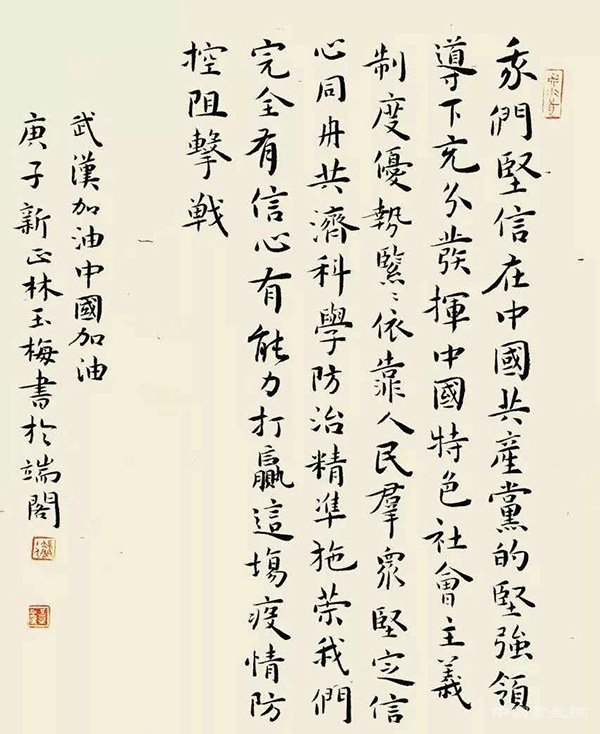 我們堅信在中國共產黨的堅強領
導下充分發揮中國特色社會主義
制度優勢緊〻依靠人民羣眾堅定信
心同舟共濟科學防治精準施策我們
完全有信心有能力打贏這場疫情防
控阻擊戦
武漢加油中國加油
庚子新正林玉梅書於端閣